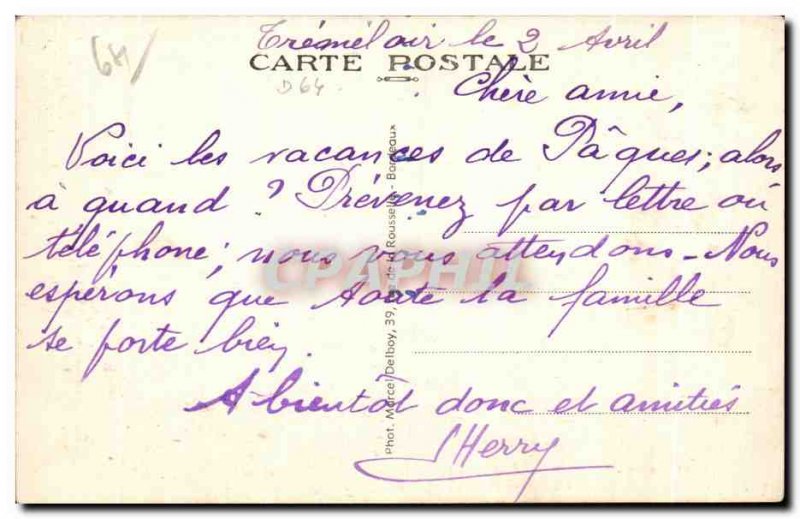 64
Trémel soir le 2 Avril
CARTE POSTALE
D64
Chère amie,
Voici les vacances de Pâques; alors
à quand ? Prévenez par lettre ou
téléphone; nous vous attendons - Nous
espérons que toute la famille
se porte bien.
A bientôt donc et amitiés
Herry
Phot. Marcel Delboy, 39, Rue de la Rousselle - Bordeaux
CPAPHIL